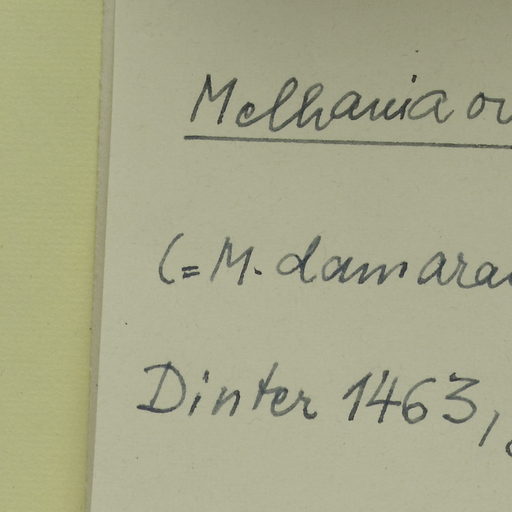 Melhania ov
(= M. damaran
Dinter 1463,